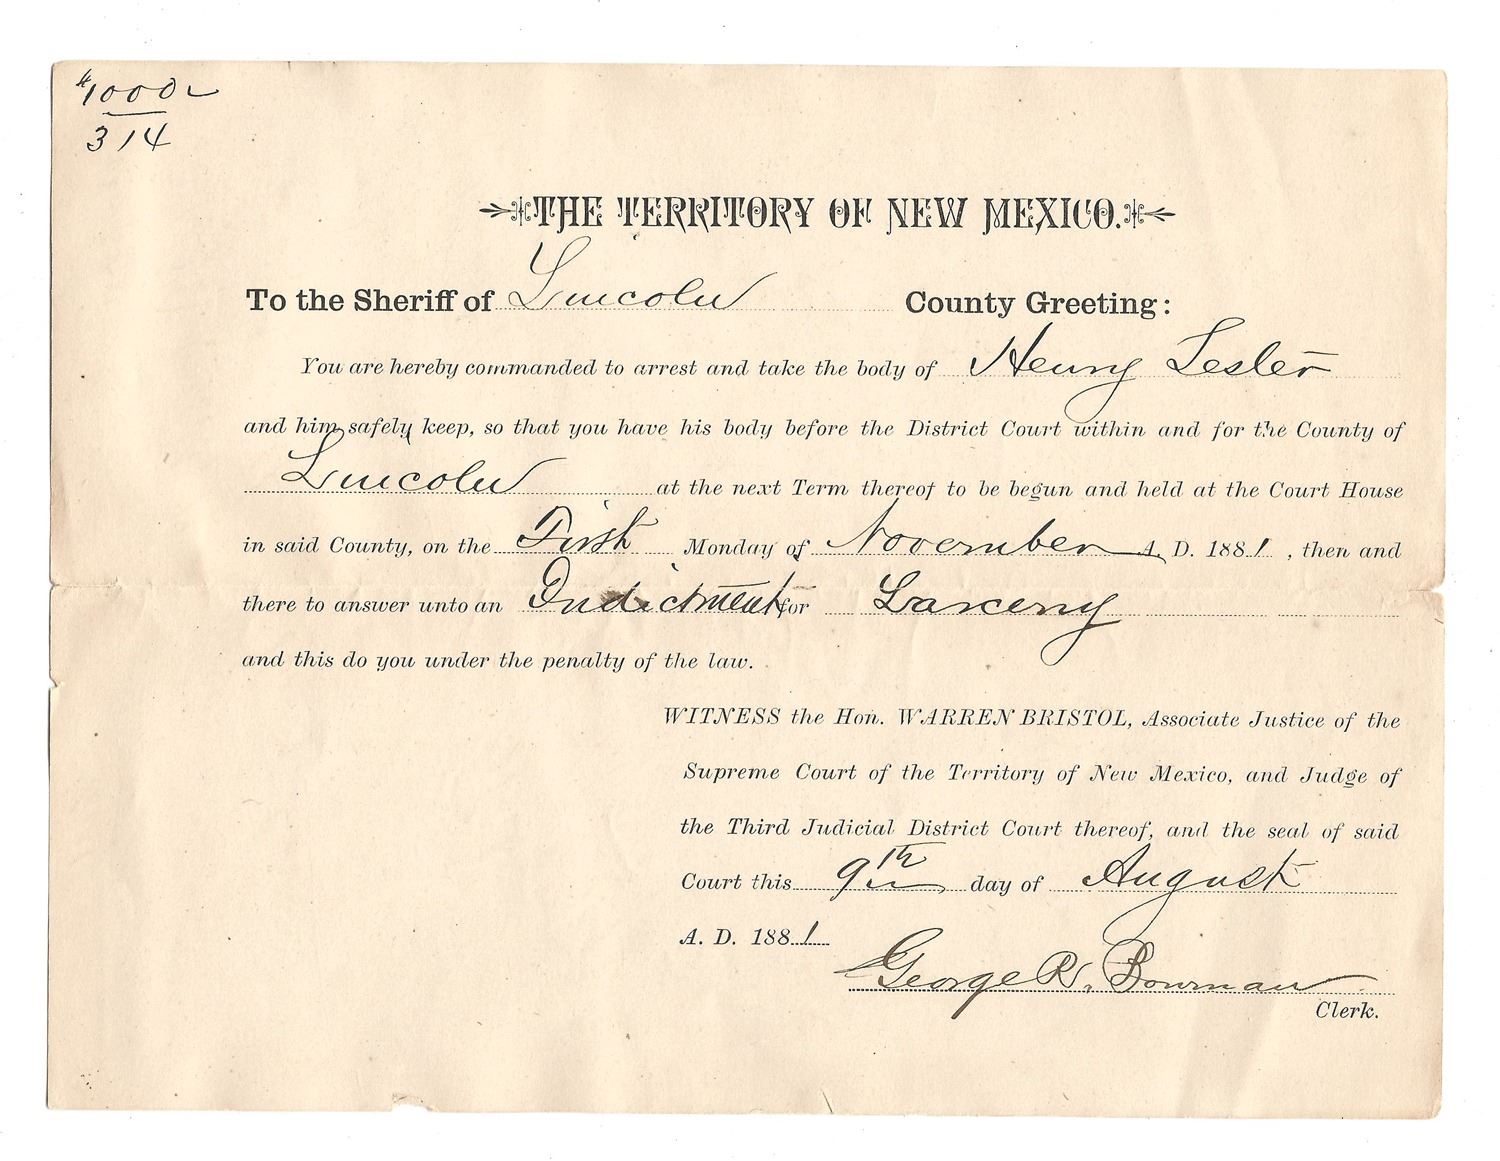 #1000
314
THE TERRITORY OF NEW MEXICO.
To the Sheriff of Lincoln County Greeting:
You are hereby commanded to arrest and take the body of Henry Lesler
and him safely keep, so that you have his body before the District Court within and for the County of
Lincoln at the next Term thereof to be begun and held at the Court House
in said County, on the First Monday of November A. D. 1881, then and
there to answer unto an Indictment for Larceny
and this do you under the penalty of the law.
WITNESS the Hon. WARREN BRISTOL, Associate Justice of the
Supreme Court of the Territory of New Mexico, and Judge of
the Third Judicial District Court thereof, and the seal of said
Court this 9th day of August
A. D. 1881
George R. Bowman
Clerk.